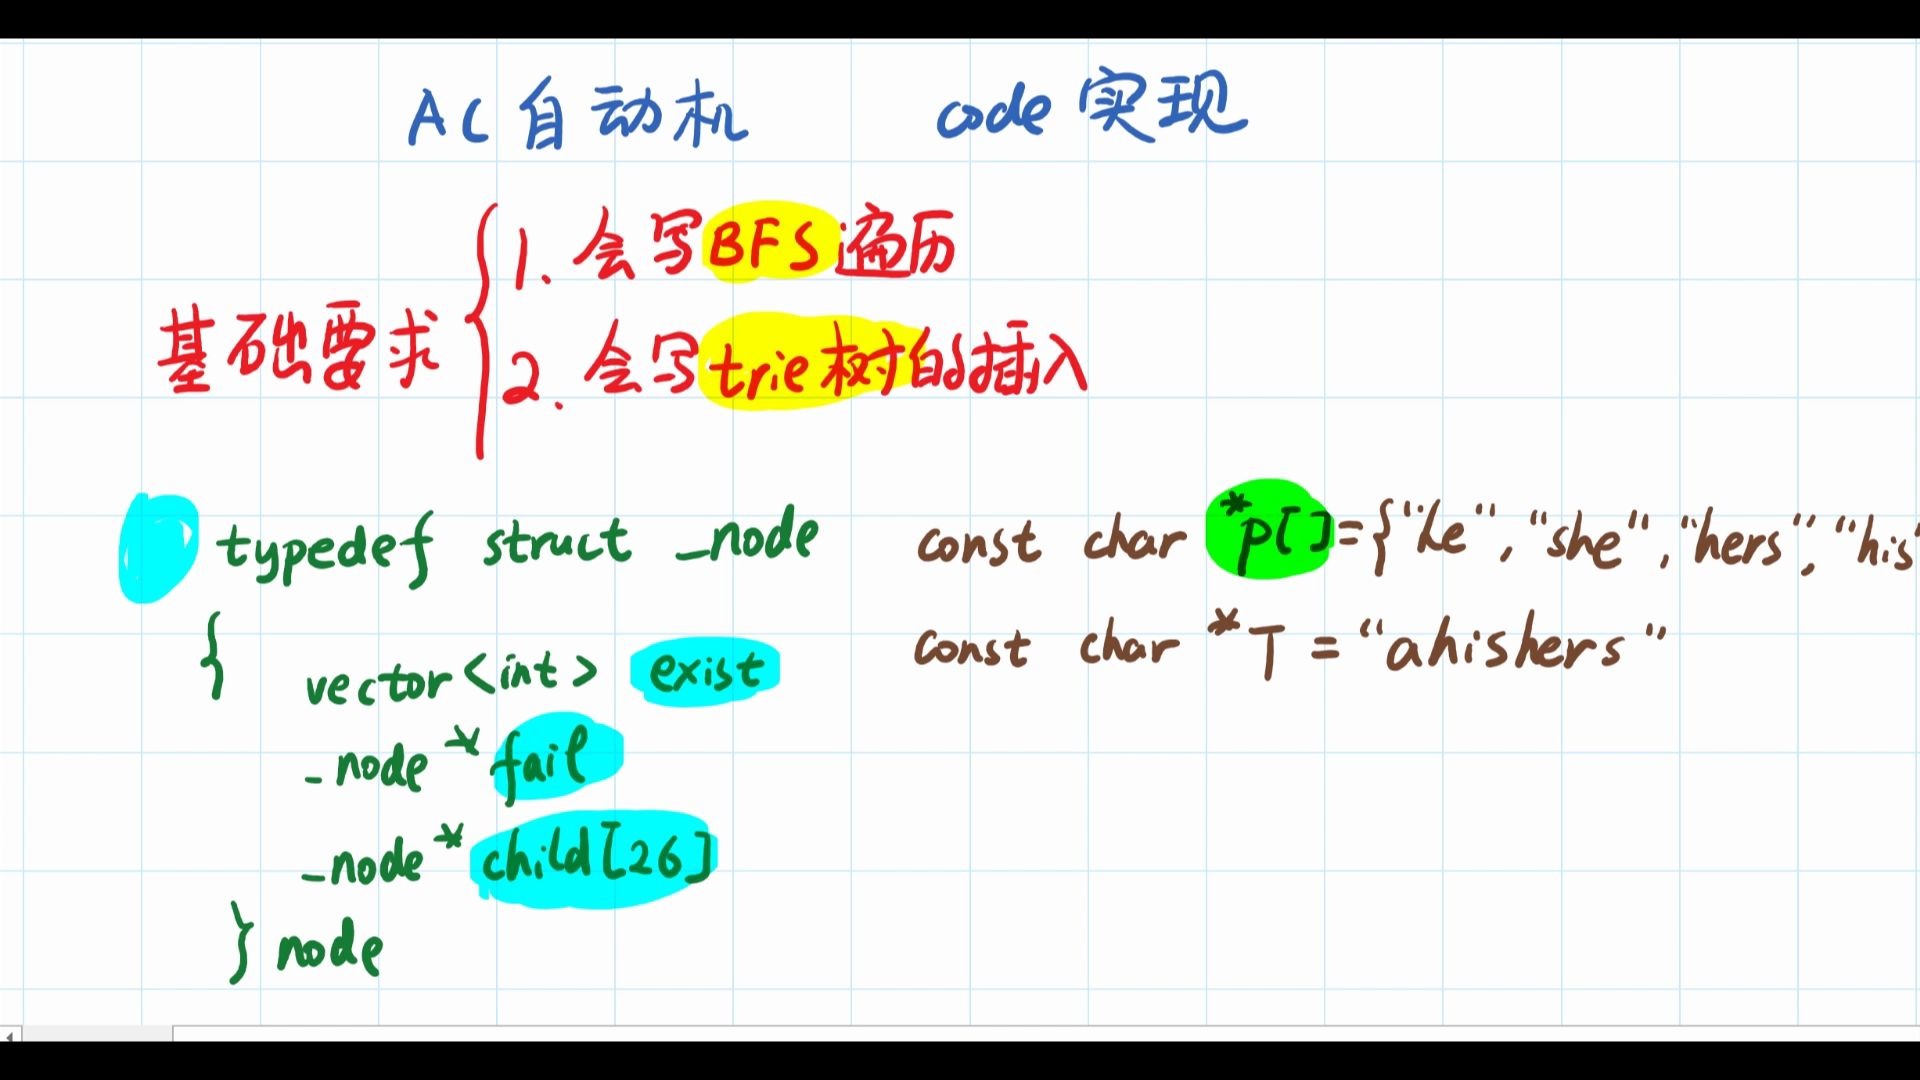 AC自动机 code实现
基础要求
1. 会写BFS遍历
2. 会写trie树的插入
typedef struct _node
{
vector<int> exist
_node * fail
_node * child[26]
} node
const char *p[]={"he", "she", "hers", "his"
const char *T = "ahishers"